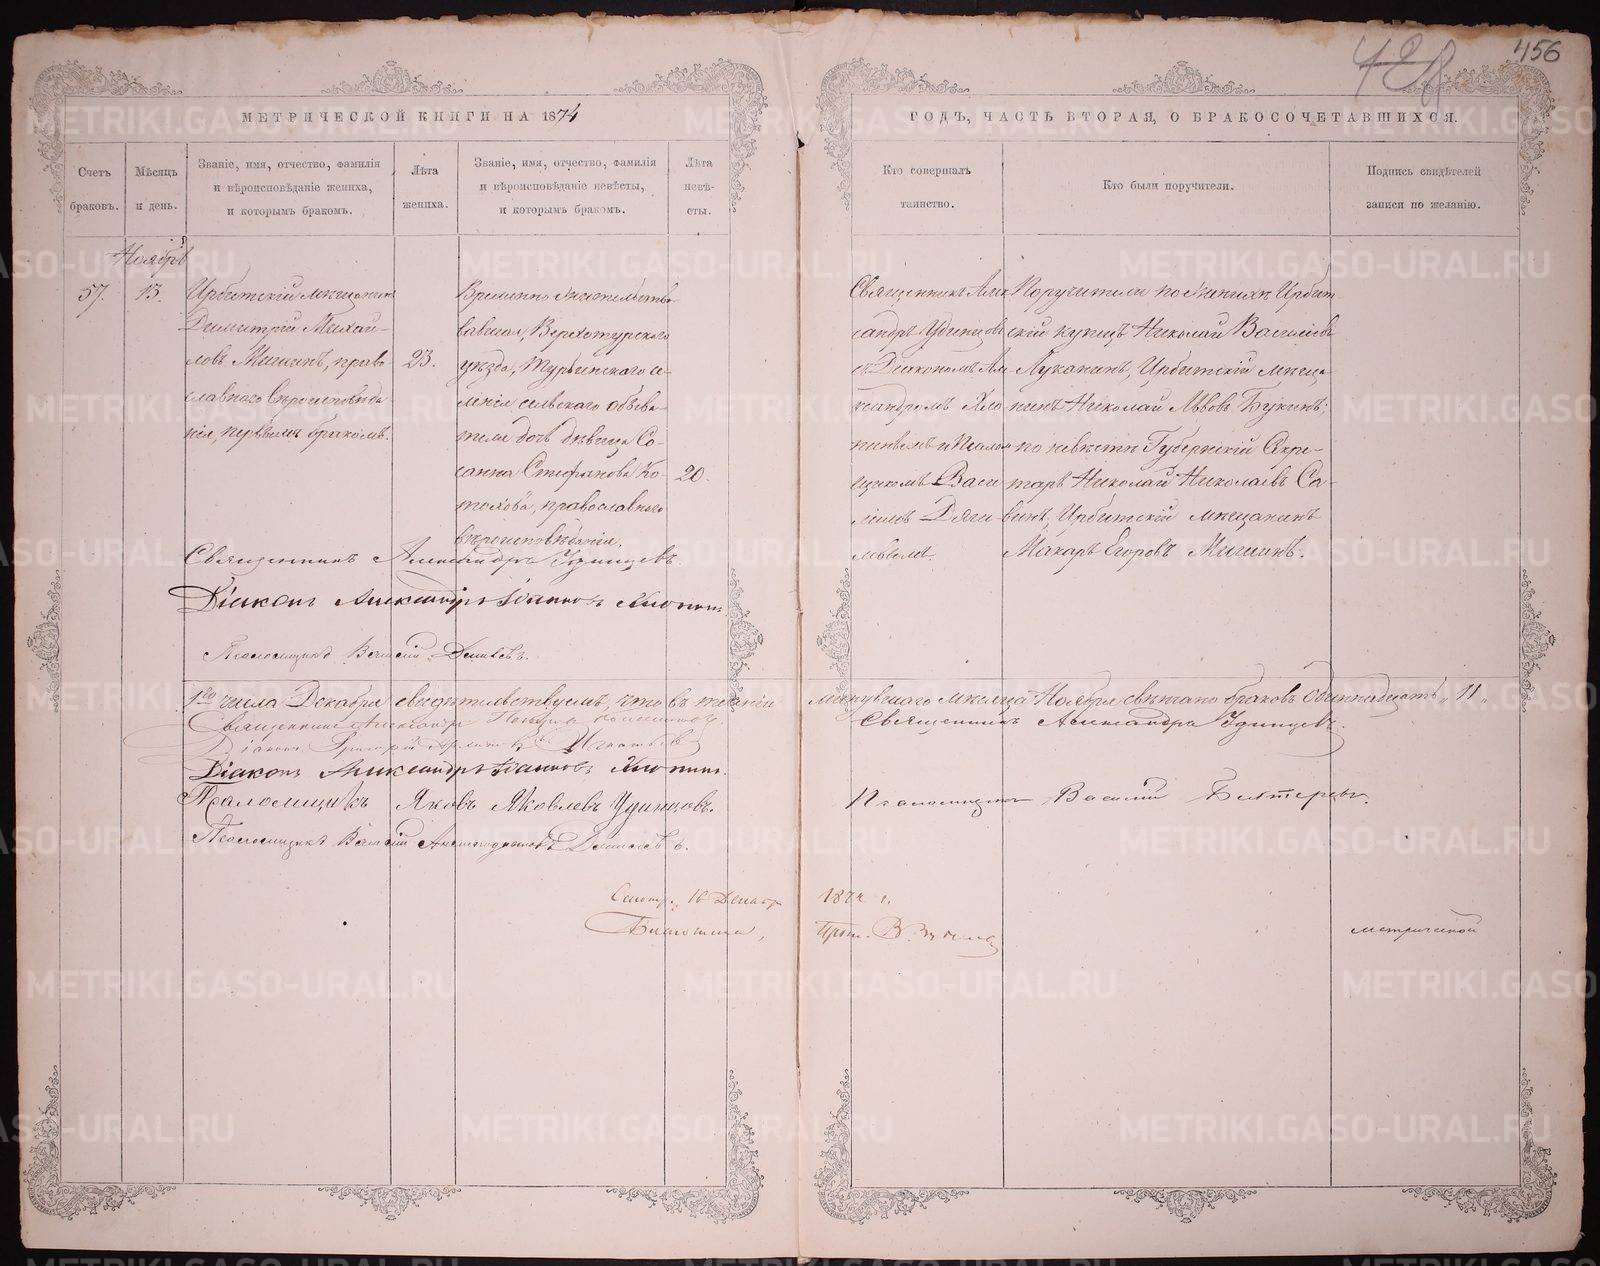 456
МЕТРИЧЕСКОЙ КНИГИ НА 1874
ГОДЪ, ЧАСТЬ ВТОРАЯ, О БРАКОСОЧЕТАВШИХСЯ.
Счетъ браковъ.
Мѣсяцъ и день.
Званіе, имя, отчество, фамилія
и вѣроисповѣданіе жениха,
и которымъ бракомъ.
Лѣта
жениха.
Званіе, имя, отчество, фамилія
и вѣроисповѣданіе невѣсты,
и которымъ бракомъ.
Лѣта
невѣ-
сты.
Кто совершалъ
таинство.
Кто были поручители.
Подпись свидѣтелей
записи по желанію.
Ноябрь
57.
13.
Ирбитскій мѣщанинъ
Димитрій Михай-
ловъ Мишинъ, право-
славнаго вѣроисповѣда-
нія, первымъ бракомъ.
23.
Временно
Верхотурскаго
уѣзда, Турьинскаго се-
ленія сельскаго обыва-
теля дочь дѣвица Со-
санна Стефанова Ко-
православнаго
вѣроисповѣданія.
20.
Священникъ Алек
сандръ Удинцовъ
съ Діакономъ Але-
ксандромъ Хло-
пинымъ и Псалом
щикомъ Васи
ліемъ Дяги-
левымъ.
Поручители по женихѣ Ирбит-
скій купецъ Николай Васильевъ
Луканинъ, Ирбитскій мѣща-
нинъ Николай Львовъ Букинъ;
по невѣстѣ Губернскій Секре-
тарь Николай Николаевъ Са-
винъ, Ирбитскій мѣщанинъ
Макаръ Егоровъ Мишинъ.
Священникъ Александръ Удинцевъ.
Діаконъ Александръ Іоанновъ Хлопинъ.
Псаломщикъ Василій
1го числа Декабря свидѣтельствуемъ, что въ теченіи минувшаго мѣсяца Ноября свѣнчано браковъ одиннадцать "11"
Священникъ Александръ
Священникъ Александръ Удинцевъ.
Діаконъ Григорій
Діаконъ Александръ Іоанновъ Хлопинъ.
Псаломщикъ Яковъ Яковлевъ Удинцовъ.
Псаломщикъ Василій
Псаломщикъ Василій
10 Декабр 1874 г.
метрической
METRIKI.GASO-URAL.RU